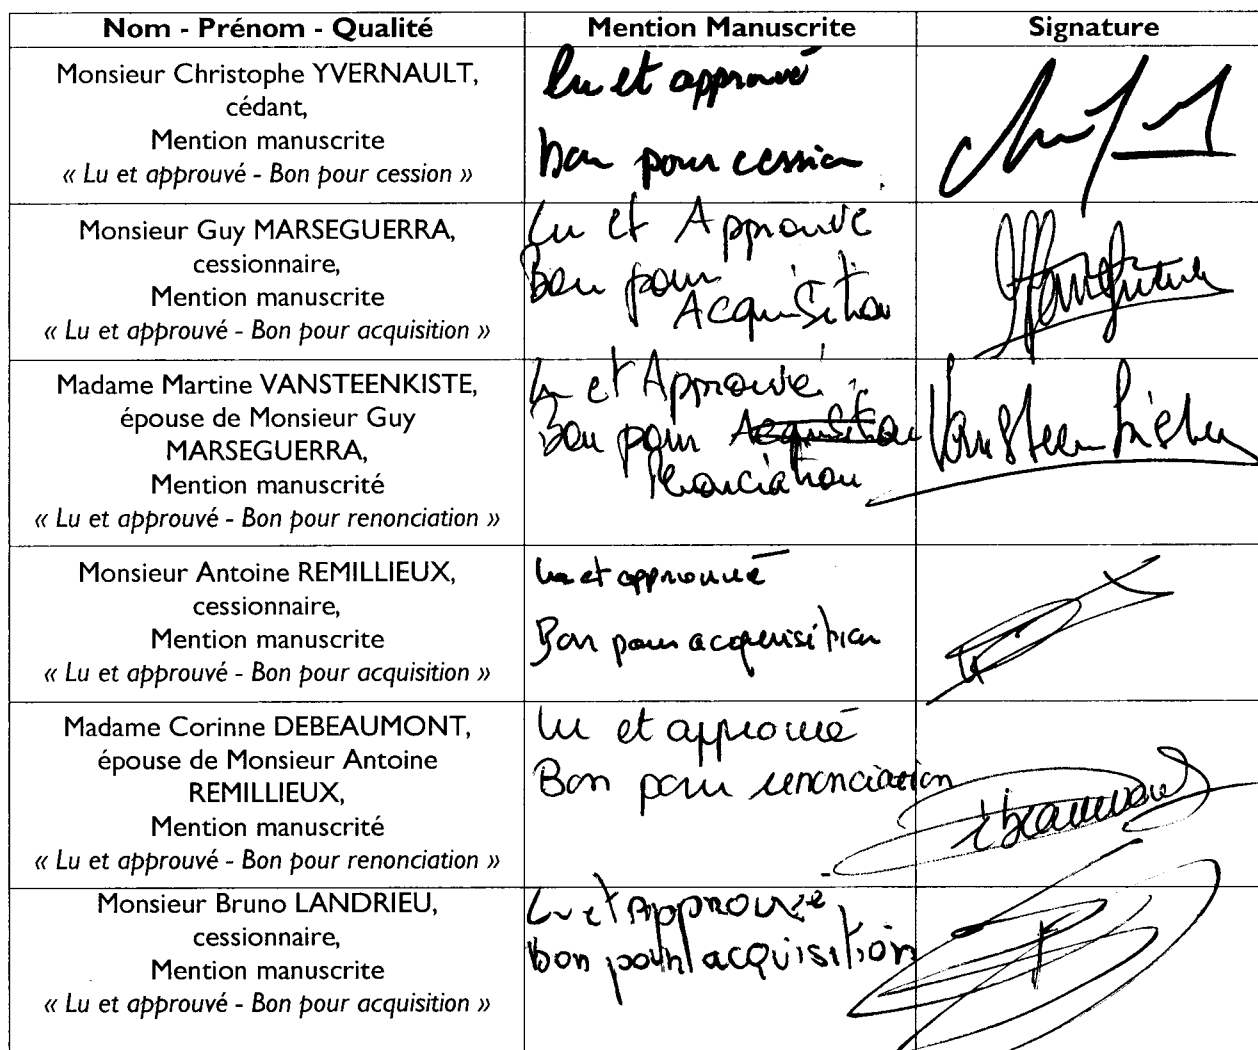 Nom - Prénom - Qualité
Mention Manuscrite
Signature
Monsieur Christophe YVERNAULT,
cédant,
Mention manuscrite
« Lu et approuvé - Bon pour cession »
lu et approuvé
bon pour cession
Monsieur Guy MARSEGUERRA,
cessionnaire,
Mention manuscrite
« Lu et approuvé - Bon pour acquisition »
Lu et Approuvé
Bon pour
Acquisition
Madame Martine VANSTEENKISTE,
épouse de Monsieur Guy
MARSEGUERRA,
Mention manuscrité
« Lu et approuvé - Bon pour renonciation »
Lu et Approuvé
Bon pour Acquisition
Renonciation
Vansteenkiste
Monsieur Antoine REMILLIEUX,
cessionnaire,
Mention manuscrite
« Lu et approuvé - Bon pour acquisition »
lu et approuvé
Bon pour acquisition
Madame Corinne DEBEAUMONT,
épouse de Monsieur Antoine
REMILLIEUX,
Mention manuscrité
« Lu et approuvé - Bon pour renonciation »
lu et approuvé
Bon pour renonciation
Monsieur Bruno LANDRIEU,
cessionnaire,
Mention manuscrite
« Lu et approuvé - Bon pour acquisition »
Lu et Approuvé
Bon pour acquisition